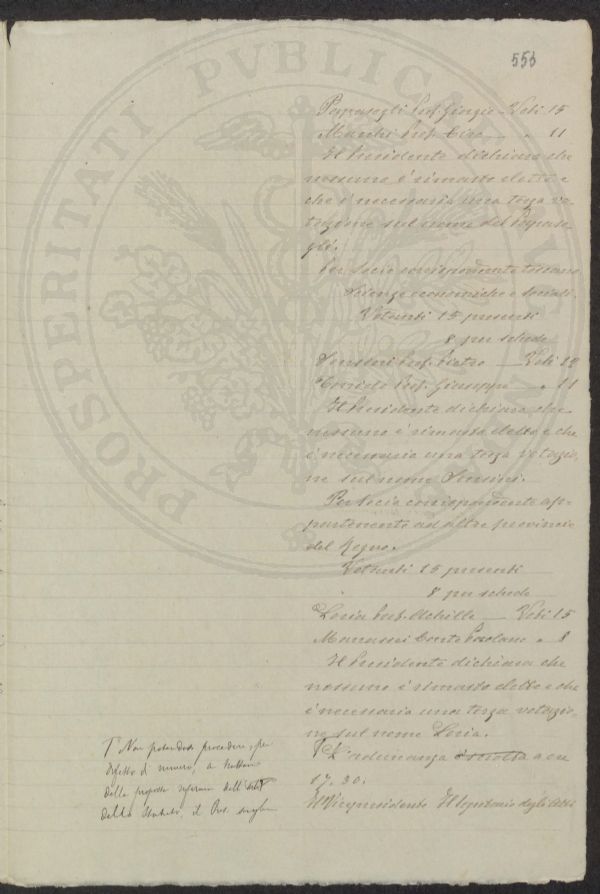 553
PROSPERITATI PVBLICAE
Papasogli Prof. Giorgio — Voti 15
Prof. Ciro — " 11
Il Presidente dichiara che
nessuno è rimasto eletto e
che è necessaria una terza vo-
tazione sul nome del Papaso-
gli.
Per socio corrispondente toscano
Scienze economiche e sociali.
Votanti 15 presenti
8 per schede
Prof. Pietro — Voti 12
Toniolo Prof. Giuseppe " 11
Il Presidente dichiara che
nessuno è rimasto eletto e che
è necessaria una terza votazio-
ne sul nome
Per socio corrispondente ap-
partenente ad altre provincie
del Regno.
Votanti 15 presenti
8 per schede
Loria Prof. Achille — Voti 15
Conte Paolano " 8
Il Presidente dichiara che
nessuno è rimasto eletto e che
è necessaria una terza votazio-
ne sul nome Loria.
L'adunanza è sciolta a ore
17.30.
Il Vicepresidente Il Segretario degli Atti
Non potendosi procedere, per
difetto di numero, a
della proposta riforma dell'
dello Statuto, il Pres. scioglie